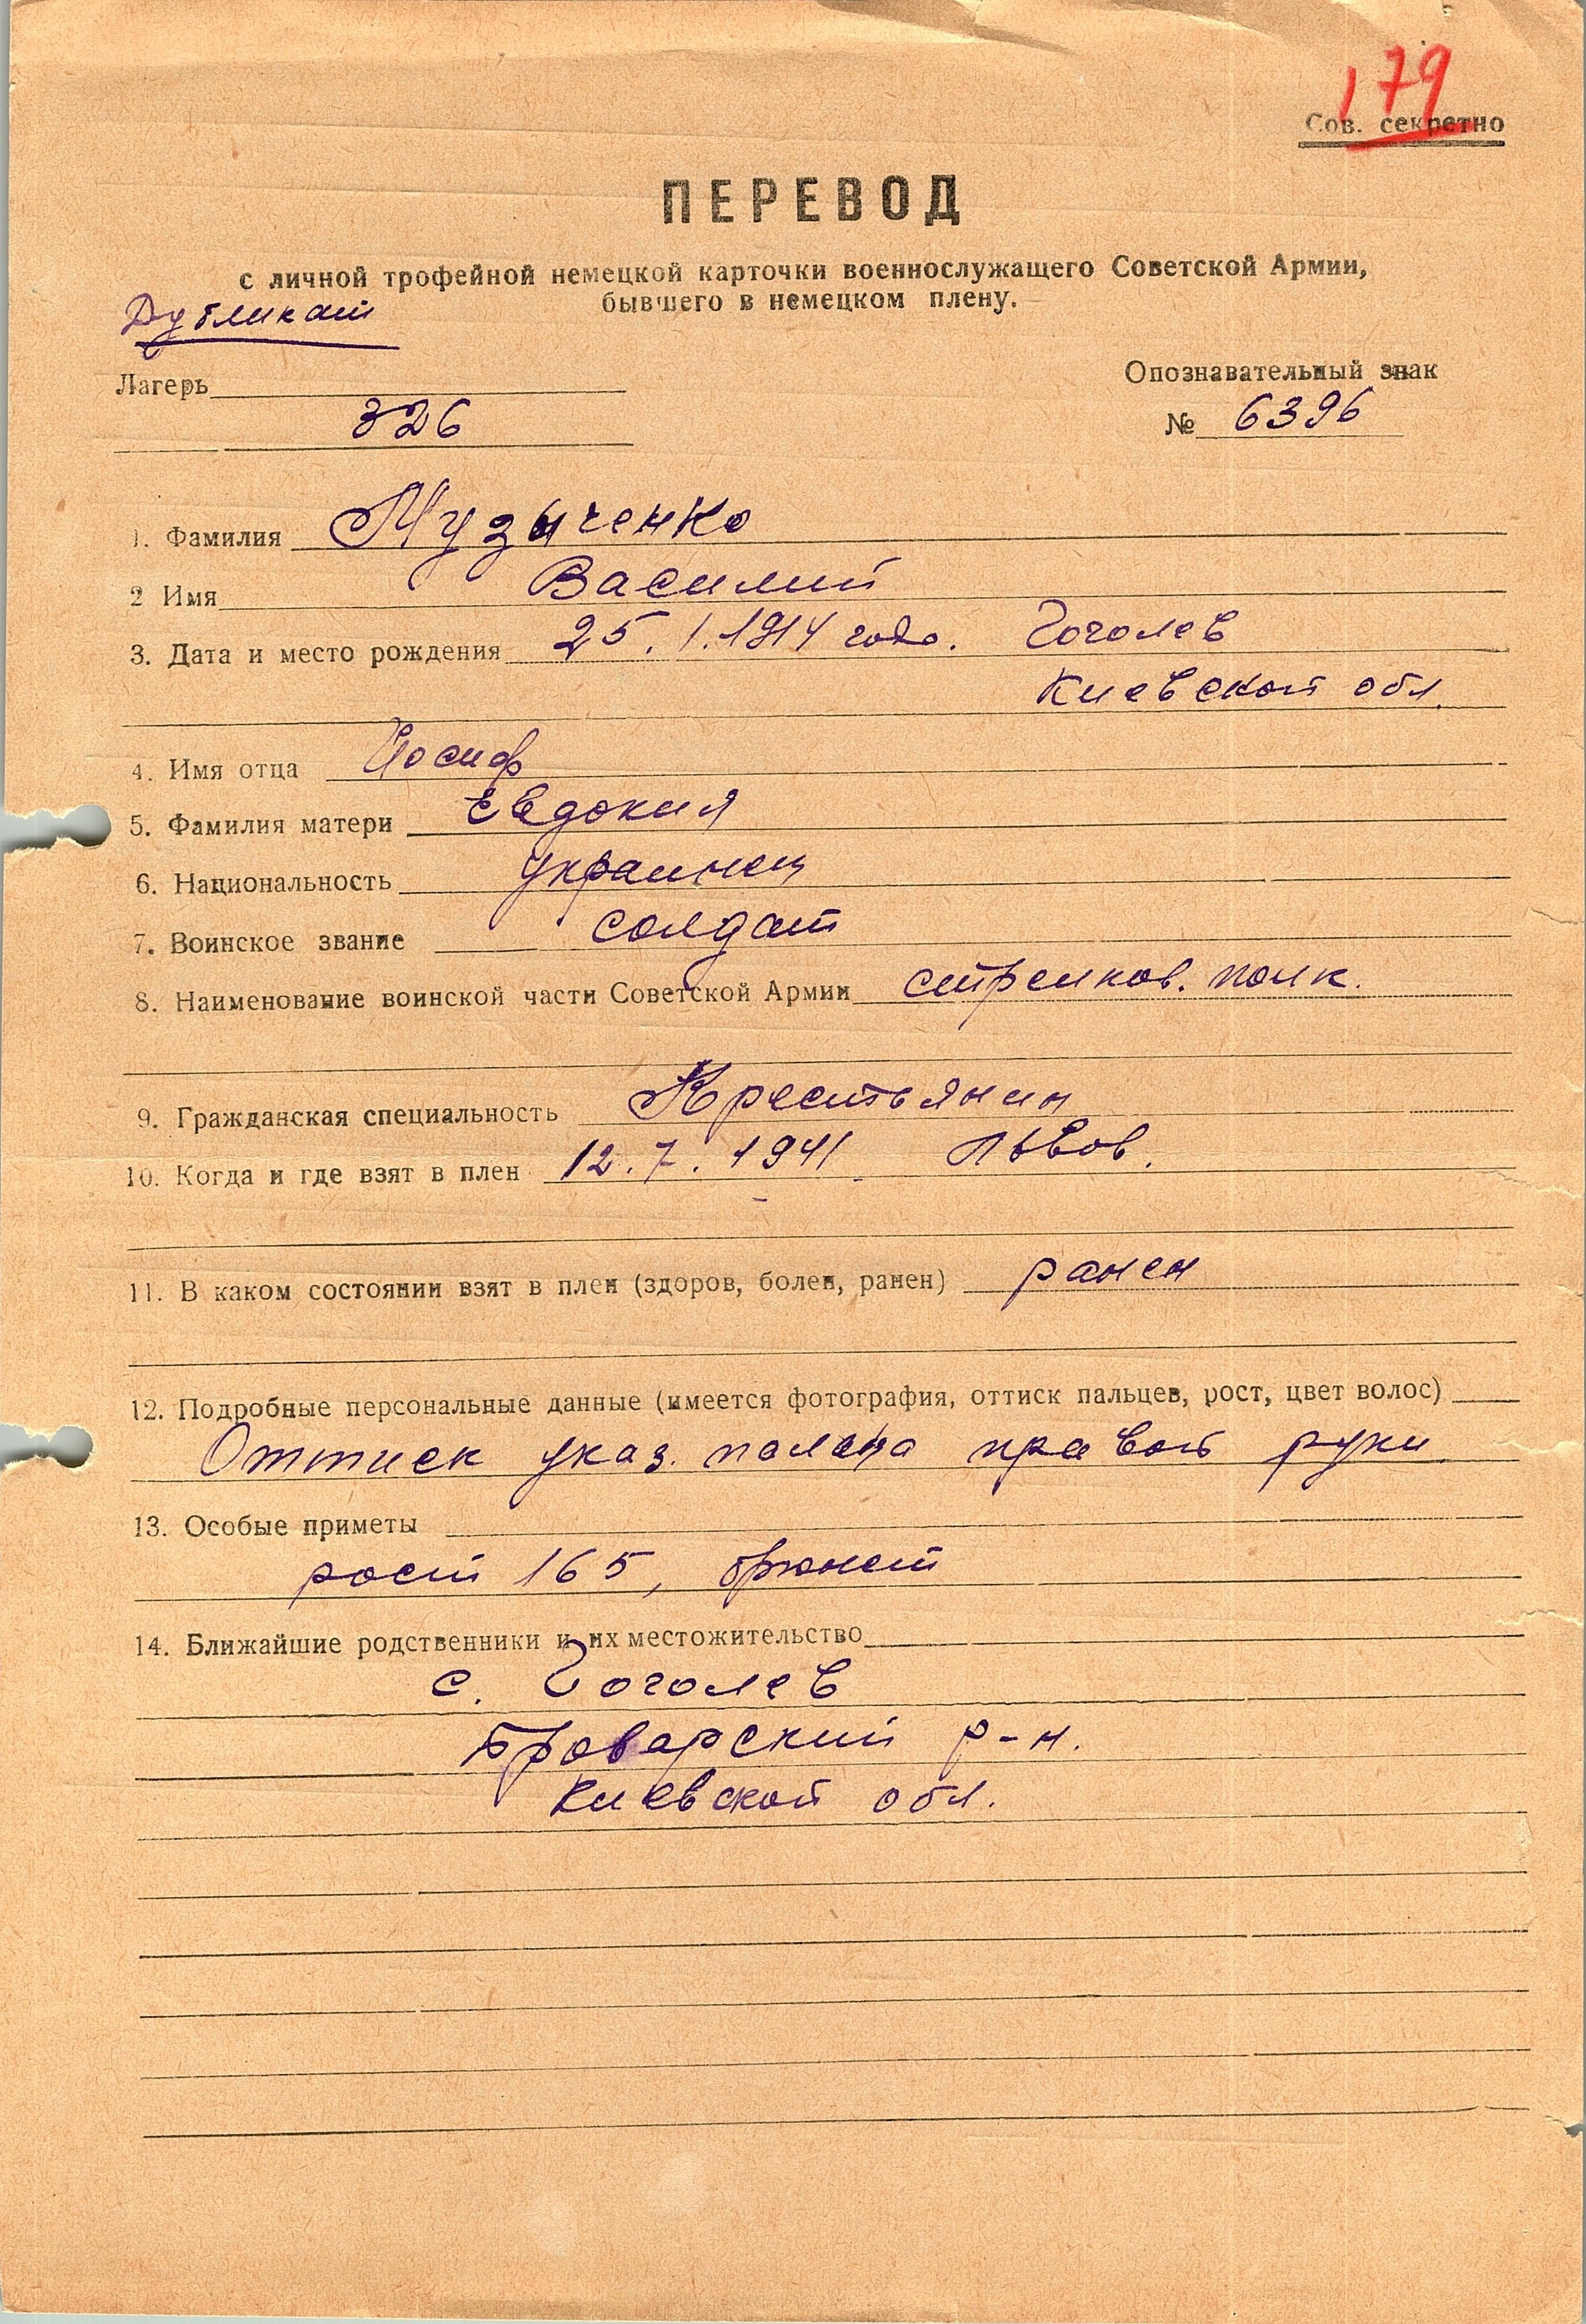 179
Сов. секретно
ПЕРЕВОД
с личной трофейной немецкой карточки военнослужащего Советской Армии,
бывшего в немецком плену.
Дубликат
Лагерь
Опознавательный знак
326
№ 6396
1. Фамилия Музыченко
2 Имя Василий
3. Дата и место рождения 25.1.1914 года. Гоголев
Киевской обл.
4. Имя отца Иосиф
5. Фамилия матери Евдокия
6. Национальность украинец
7. Воинское звание солдат
8. Наименование воинской части Советской Армии стрелков. полк.
9. Гражданская специальность Крестьянин
10. Когда и где взят в плен 12.7.1941 Львов.
11. В каком состоянии взят в плен (здоров, болен, ранен) ранен
12. Подробные персональные данные (имеется фотография, оттиск пальцев, рост, цвет волос)
Оттиск указ. пальца правой руки
13. Особые приметы
рост 165, брюнет
14. Ближайшие родственники и их местожительство
с. Гоголев
Броварский р-н.
Киевской обл.